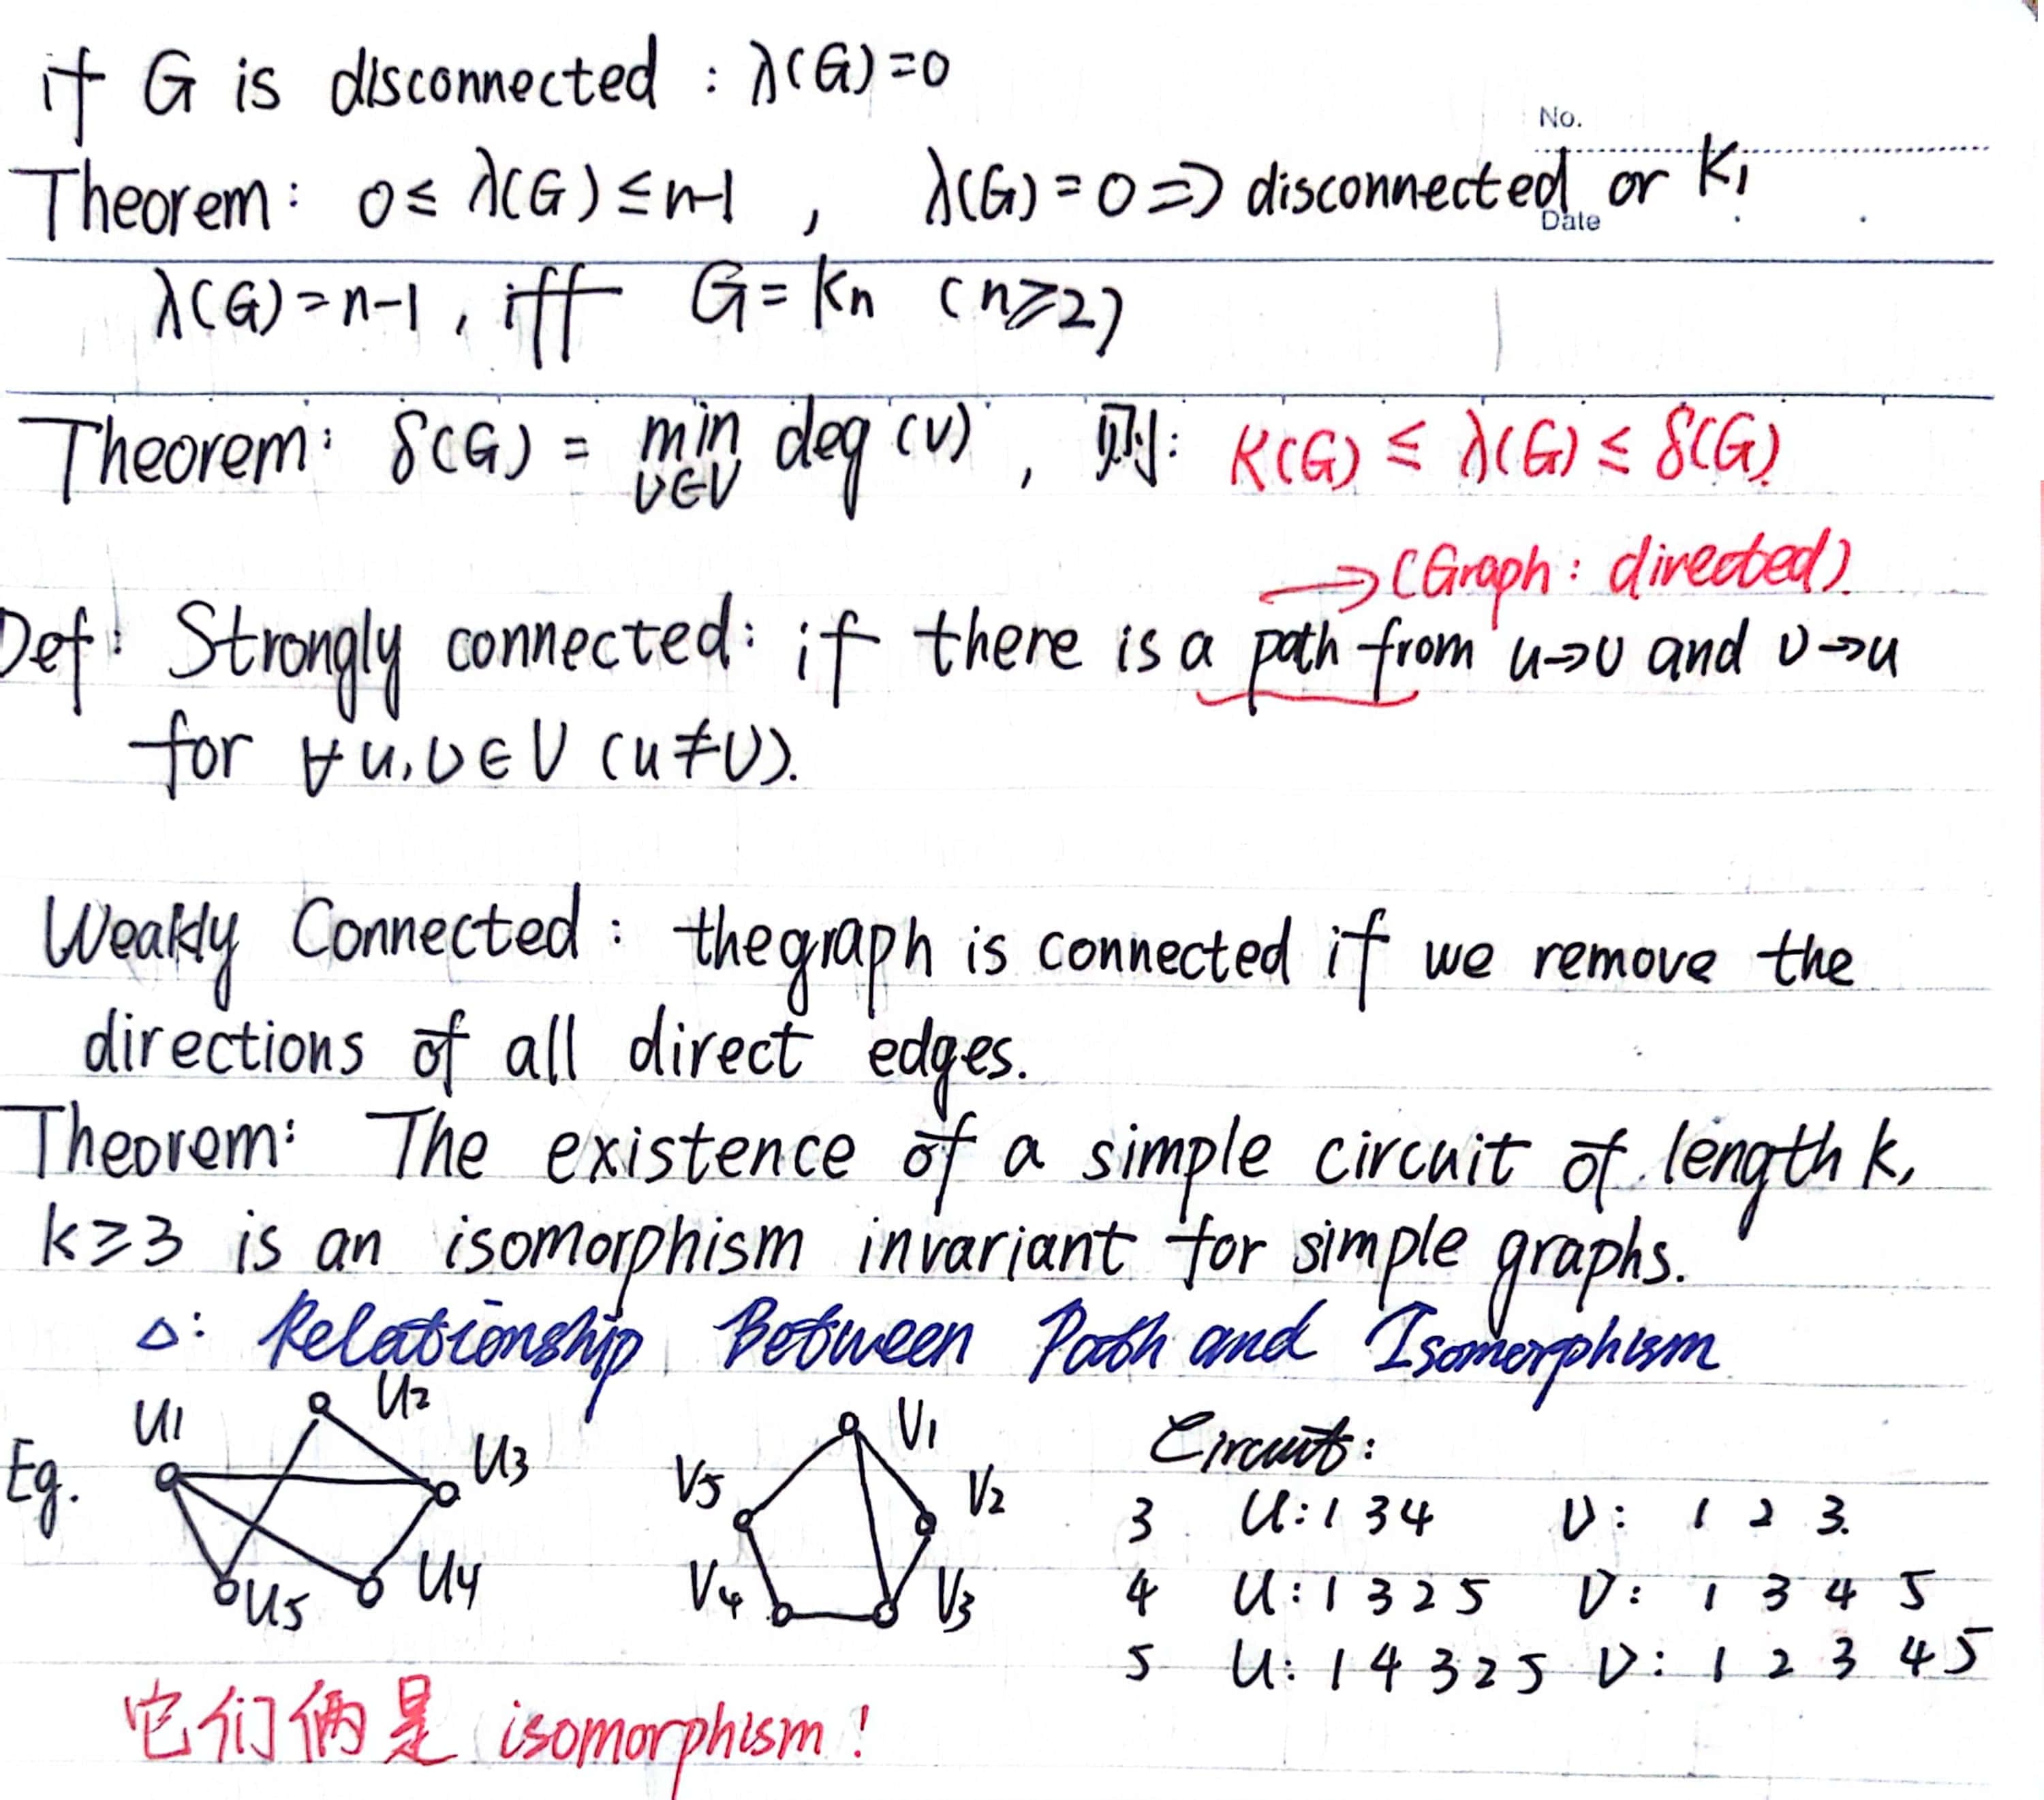 if G is disconnected : λ(G)=0
No.
Theorem: 0≤ λ(G) ≤n-1 , λ(G)=0 => disconnected or K₁
Date
λ(G)=n-1, iff G=Kn (n≥2)
Theorem: δ(G) = min deg(v), 则: K(G) ≤ λ(G) ≤ δ(G)
v∈V
→(Graph: directed).
Def: Strongly connected: if there is a path from u→v and v→u
for ∀u,v∈V (u≠v).
Weakly Connected: the graph is connected if we remove the
directions of all direct edges.
Theorem: The existence of a simple circuit of length k,
k≥3 is an isomorphism invariant for simple graphs.
△: Relationship Between Path and Isomorphism
U1 U2 V1 Circuit:
Eg. U3 V5 V2 3 U:134 V: 1 2 3.
U5 U4 V4 V3 4 U:1325 V: 1 3 4 5
5 U:14325 V: 1 2 3 4 5
它们俩是 isomorphism!